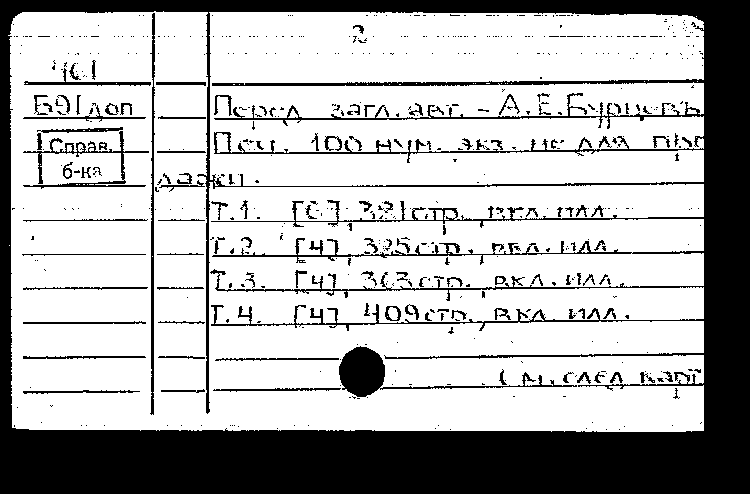 2
461
Б91доп
Перед загл. авт. - А.Е.Бурцевъ
Справ.
б-ка
Печ. 100 нум. экз. не для про
дажи.
Т.1. [6], 381стр., вкл. илл.
Т.2. [4], 325стр., вкл. илл.
Т.3. [4], 363стр., вкл. илл.
Т.4. [4], 409стр., вкл. илл.
(см. след карт